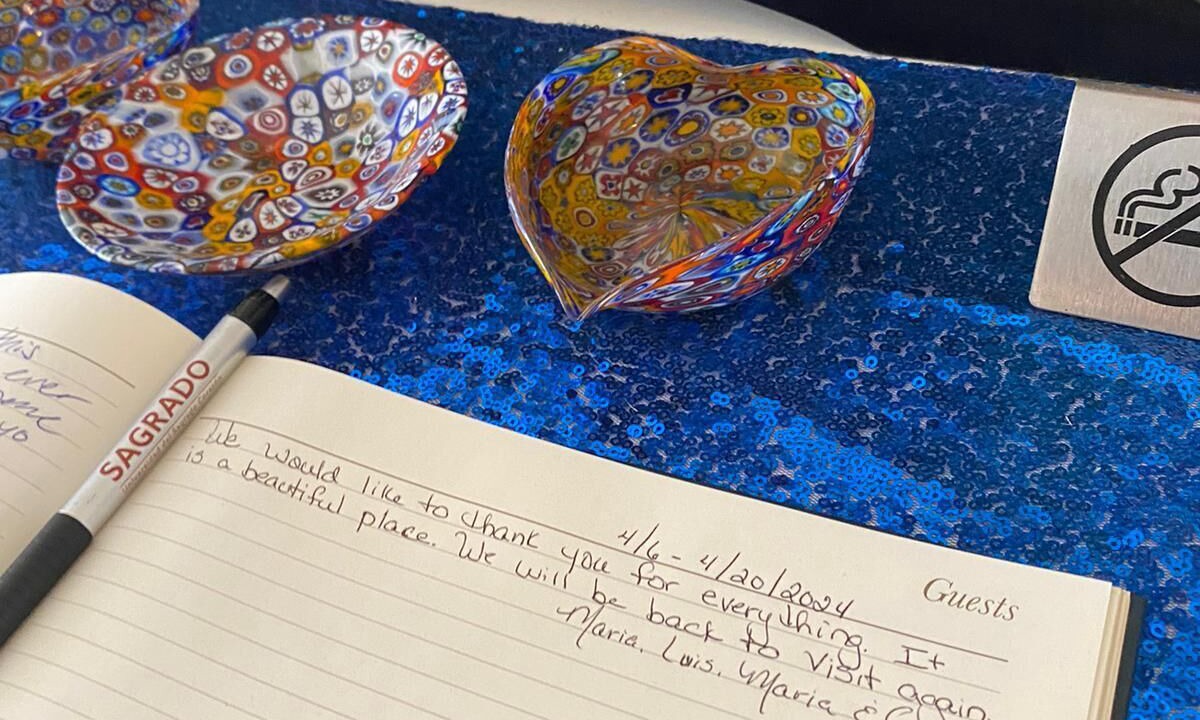 this
ever
SAGRADO
Guests
4/6 - 4/20/2024
We would like to thank you for everything. It
is a beautiful place. We will be back to visit again.
Maria, Luis, Maria &